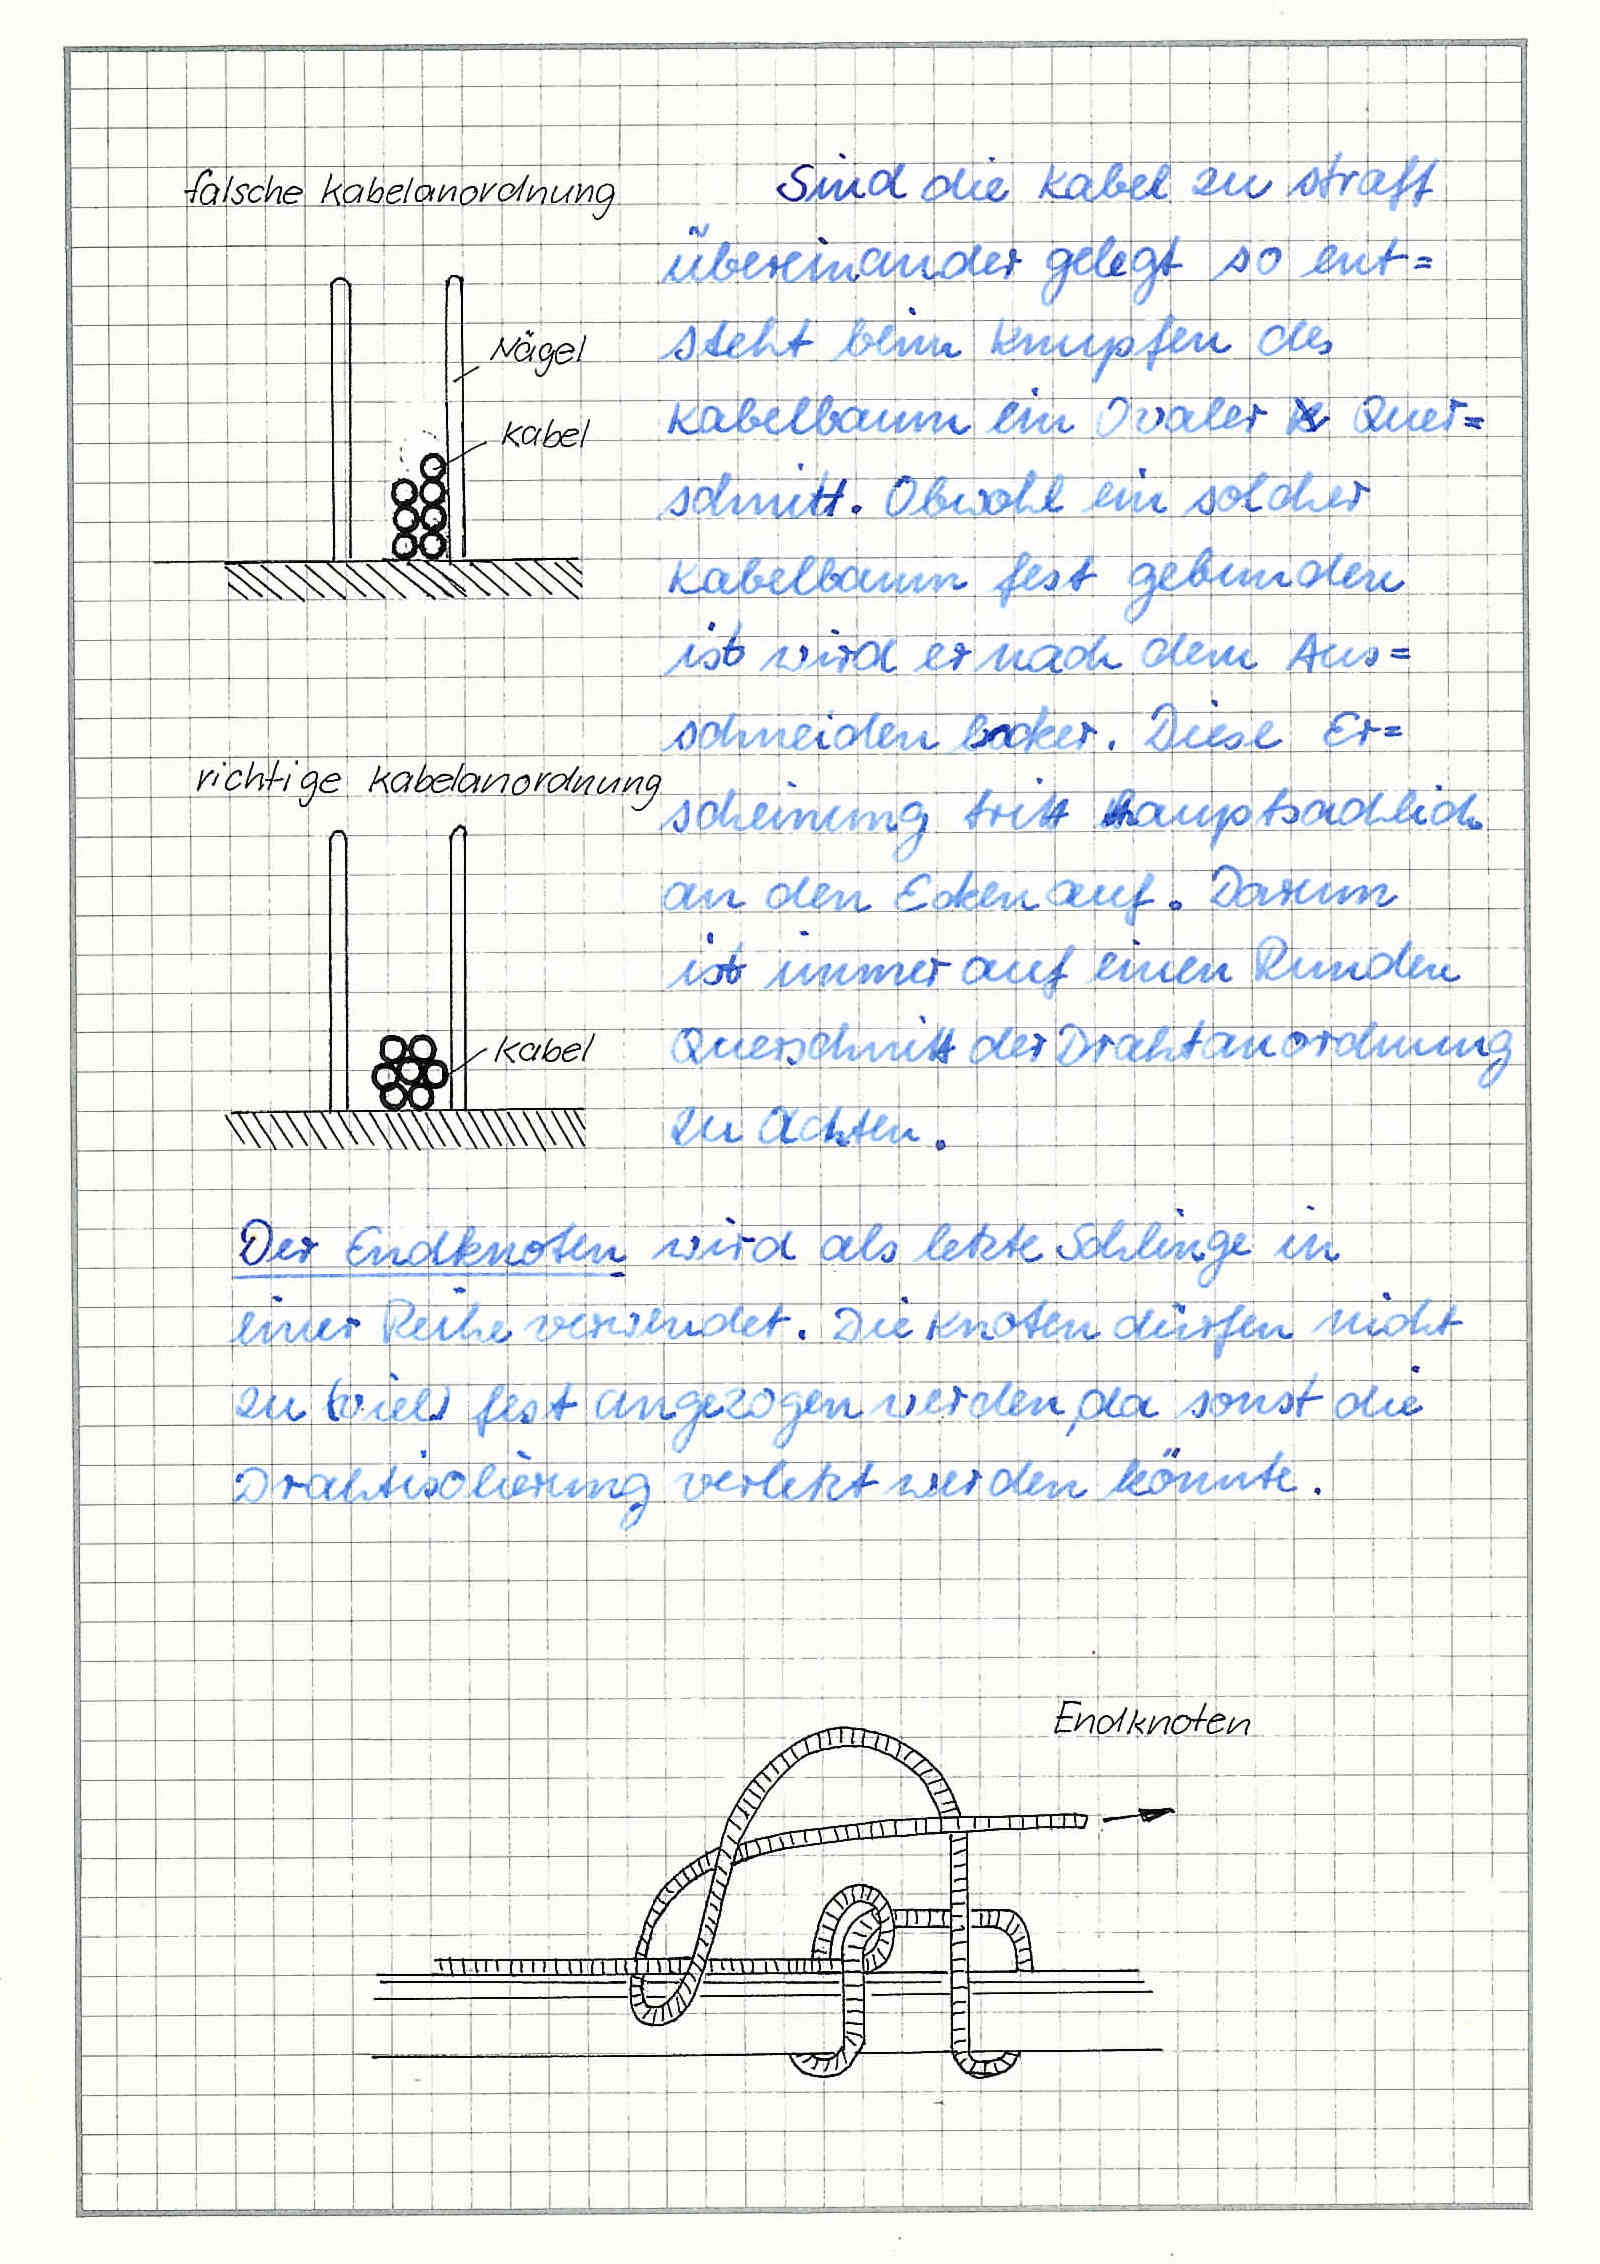 falsche Kabelanordnung
Nägel
Kabel
Sind die Kabel zu straff
übereinander gelegt so ent=
steht beim Knupfen des
Kabelbaum ein Ovaler Quer=
schnitt. Obwohl ein solcher
Kabelbaum fest gebunden
ist wird er nach dem Aus=
schneiden locker. Diese Er=
scheinung tritt hauptsachlich
an den Ecken auf. Darum
ist immer auf einen Runden
Querschnitt der Drahtanordnung
zu Achten.
richtige Kabelanordnung
Kabel
Der Endknoten wird als letzte Schlinge in
einer Reihe verwendet. Die Knoten dürfen nicht
zu (viel) fest angezogen werden, da sonst die
Drahtisolierung verletzt werden könnte.
Endknoten